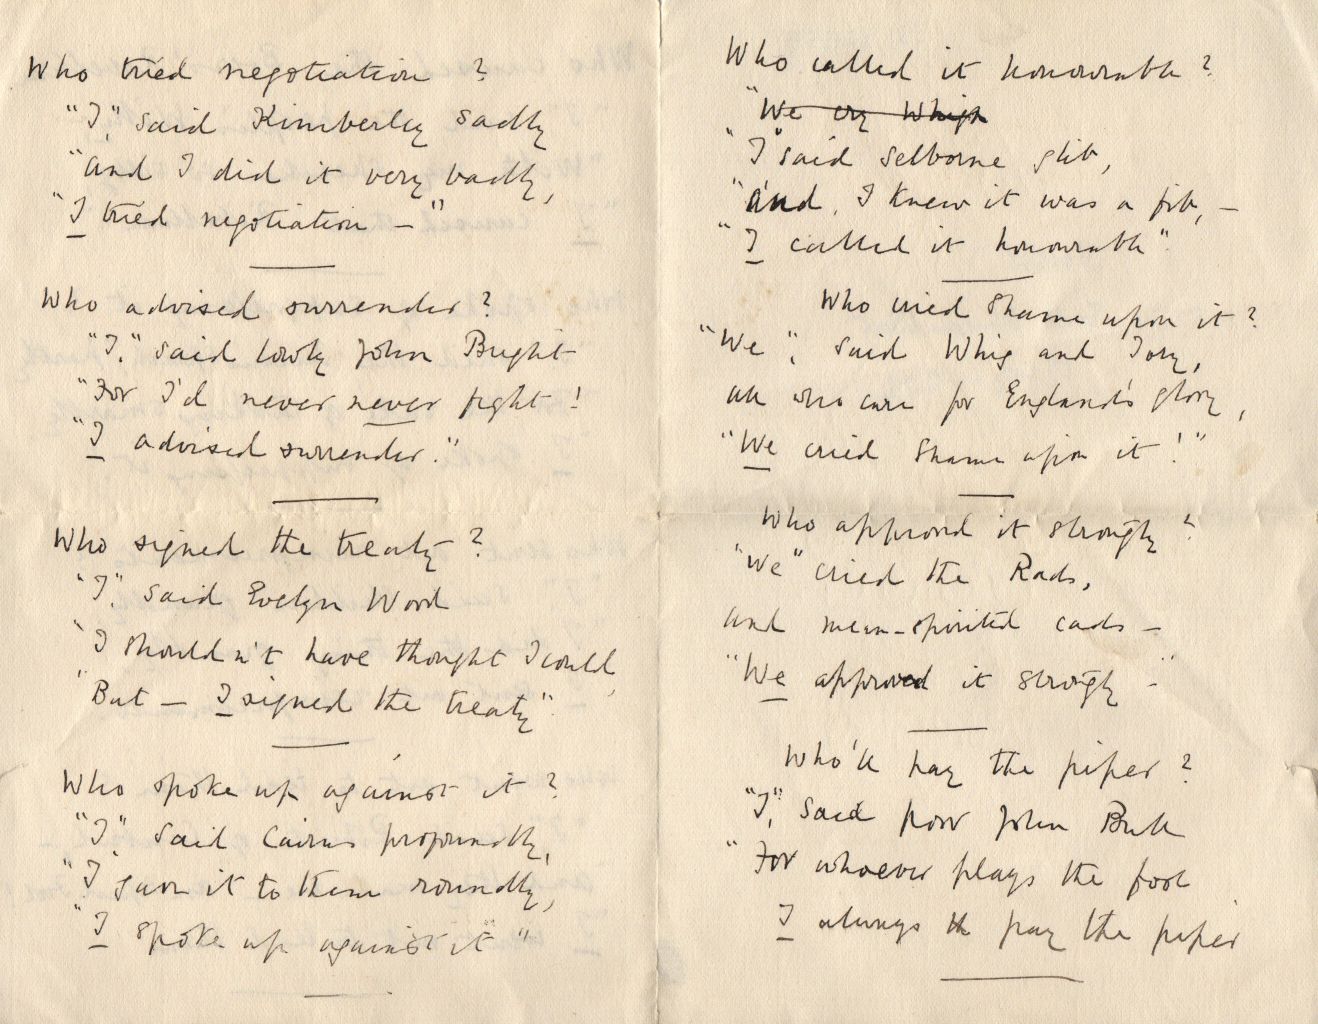 Who tried negotiation?
"I," said Kimberley sadly
"and I did it very badly,
"I tried negotiation –"
Who advised surrender?
"I," said lowly John Bright
"For I'd never never fight!
"I advised surrender."
Who signed the treaty?
"I," said Evelyn Wood
"I shouldn't have thought I could,
"But – I signed the treaty".
Who spoke up against it?
"I," said Cairns profoundly,
"I gave it to them roundly,
"I spoke up against it"
Who called it honourable?
"We cry Whigs
"I" said Selborne glib,
"and, I knew it was a fib, –
"I called it honourable".
Who cried Shame upon it?
"We", said Whig and Tory,
all who care for England's glory,
"We cried Shame upon it!"
Who approved it strongly?
"We" cried the Rads,
and mean-spirited cads –
"We approved it strongly –"
Who'll pay the piper?
"I", said poor John Bull
"For whoever plays the fool
I always pay the piper